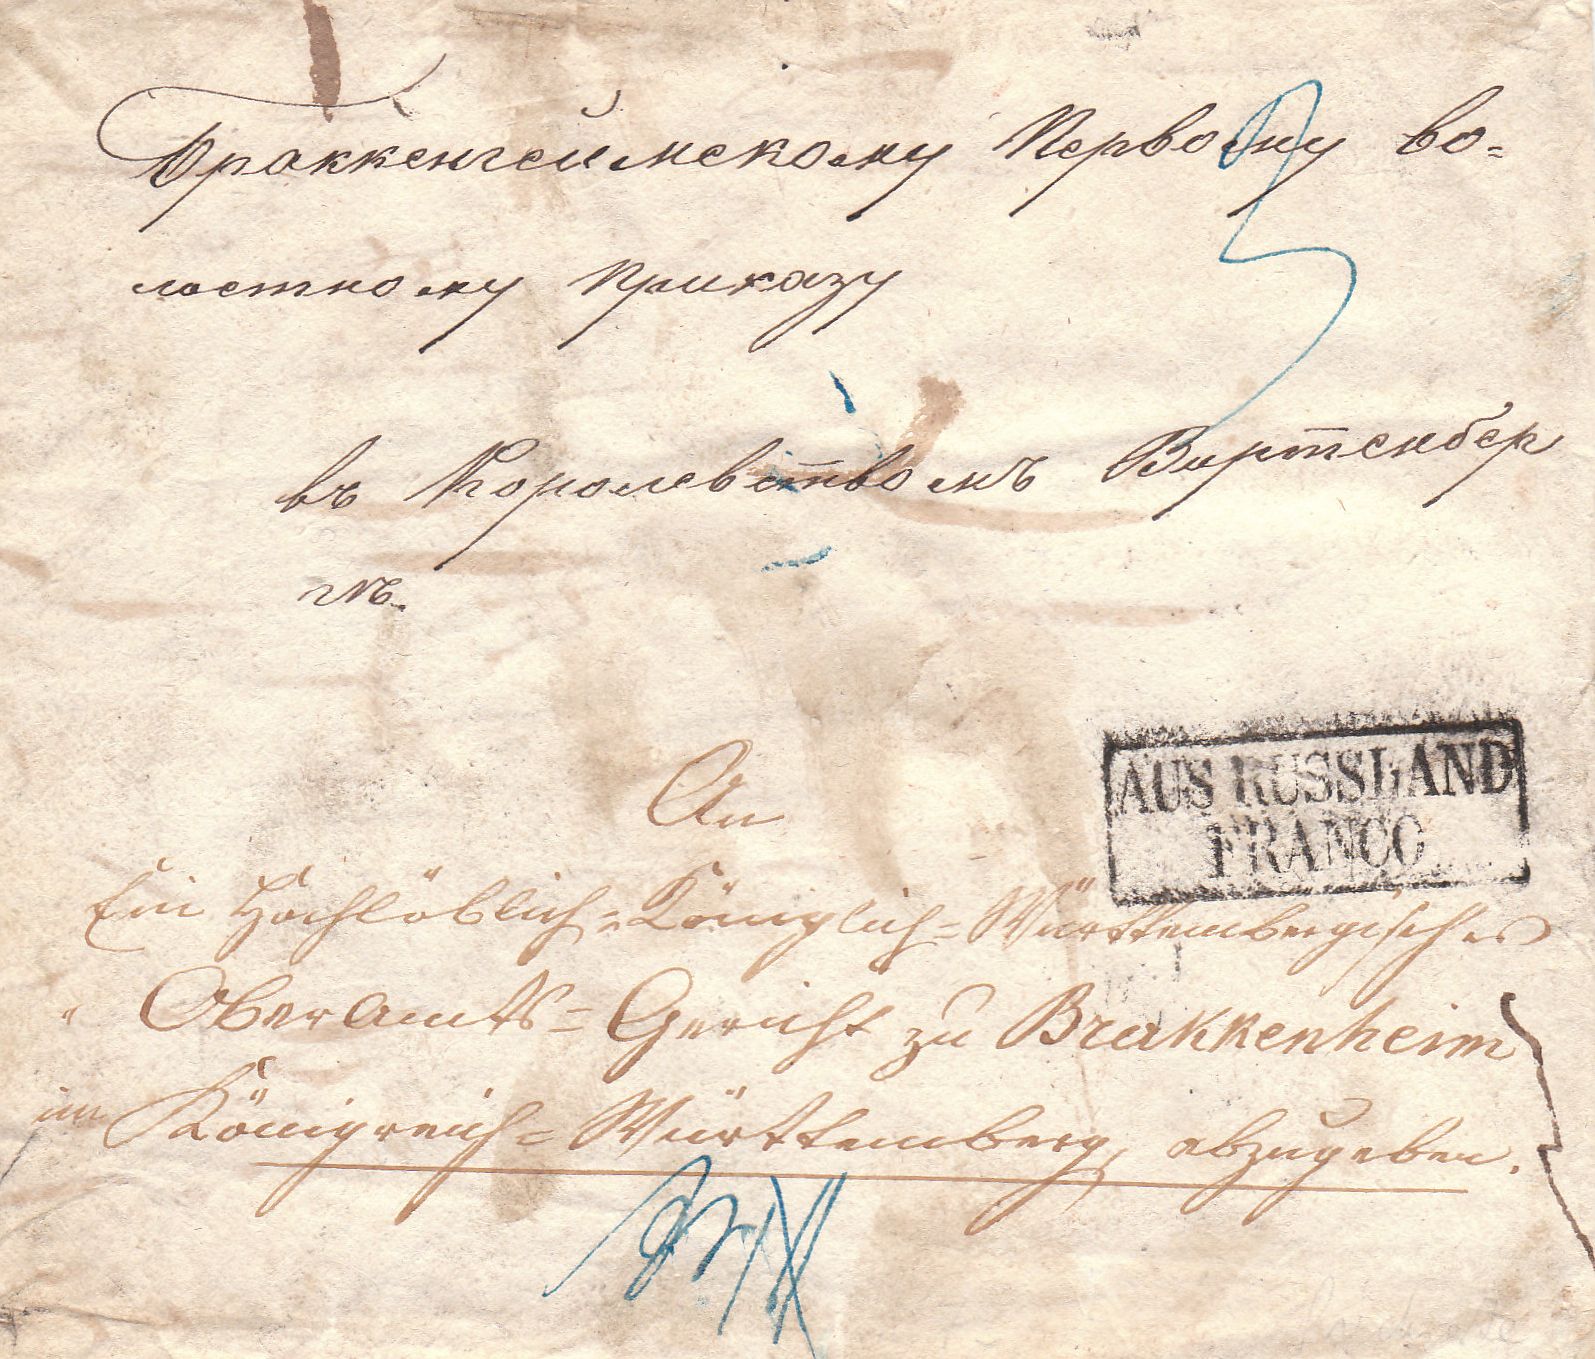 Браккенгеймскому Первому во=
лостному Приказу
въ Королевствомъ Виртембер
гъ.
AUS RUSSLAND
FRANCO
An
Ein Hochlöblich=Königlich=Württembergisches
Oberamts=Gericht zu Brakkenheim
im Königreich=Württemberg, abzugeben.